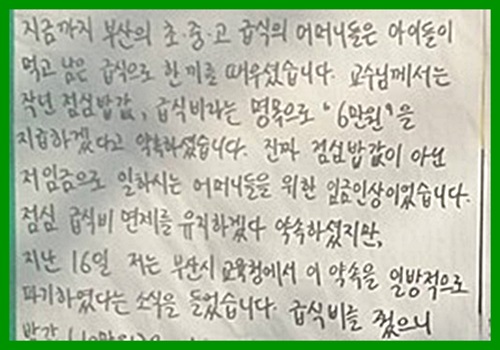 지금까지 부산의 초·중·고 급식의 어머니들은 아이들이
먹고 남은 급식으로 한끼를 때우셨습니다. 교수님께서는
작년 점심밥값, 급식비라는 명목으로 "6만원"을
지급하겠다고 약속하셨습니다. 진짜 점심밥값이 아닌
저임금으로 일하시는 어머니들을 위한 임금인상이었습니다.
점심 급식비 면제를 유지하겠다 약속하셨지만,
지난 16일 저는 부산시 교육청에서 이 약속을 일방적으로
파기하였다는 소식을 들었습니다. 급식비를 줬으니